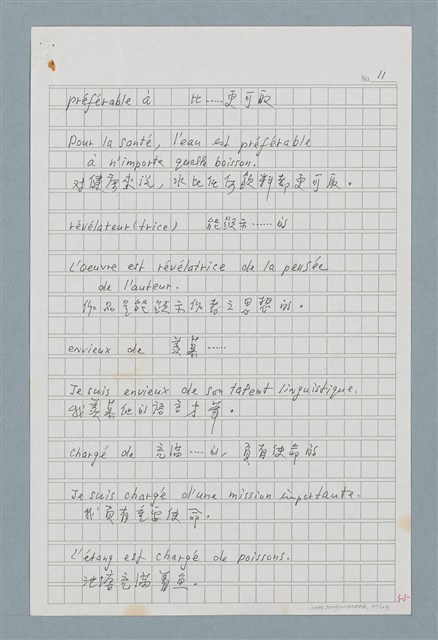 No. 11
préférable à 比……更可取
Pour la santé, l'eau est préférable
à n'importe quelle boisson.
对健康来说，水比任何飲料都更可取。
révélateur(trice) 能顯示……的
L'oeuvre est révélatrice de la pensée
de l'auteur.
作品是能顯示作者之思想的。
envieux de 羨慕……
Je suis envieux de son talent linguistique.
我羨慕他的语言才華。
chargé de 充滿…的，負有使命的
Je suis chargé d'une mission importante.
我負有重要使命。
L'étang est chargé de poissons.
池塘充滿着魚。